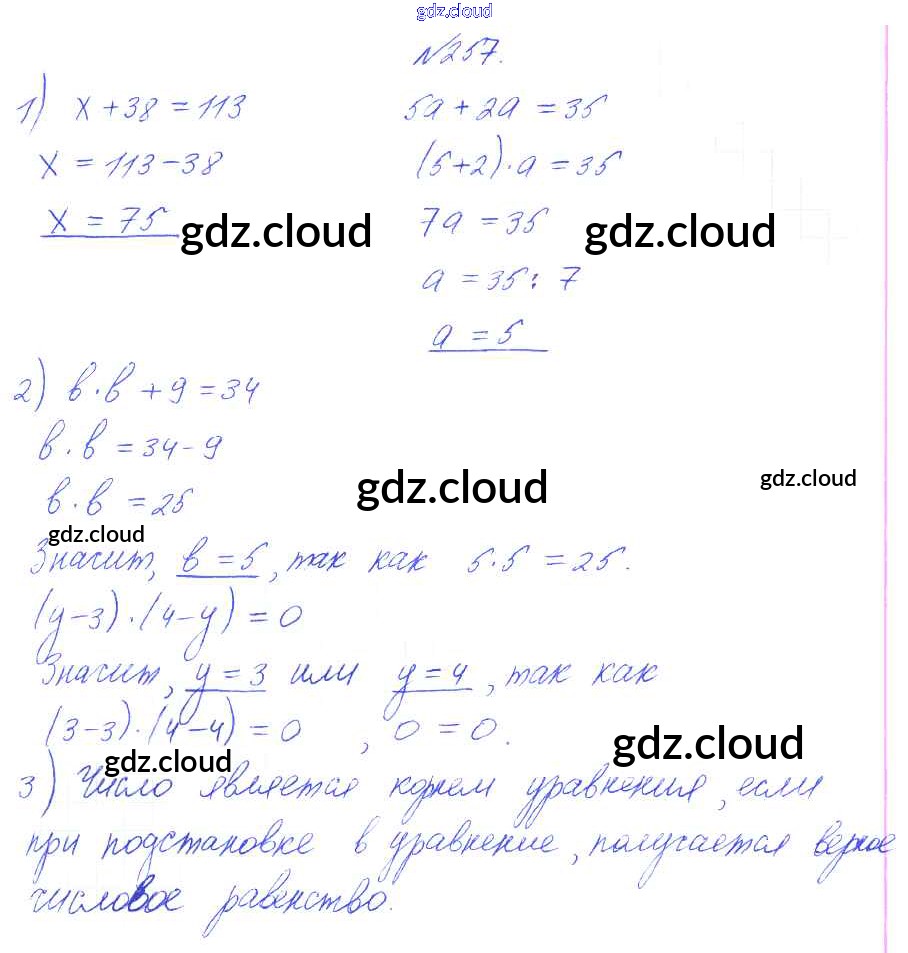 gdz.cloud
№257.
1) x + 38 = 113
x = 113 - 38
x = 75
gdz.cloud
5a + 2a = 35
(5+2)·a = 35
7a = 35
gdz.cloud
a = 35 : 7
a = 5
2) в·в + 9 = 34
в·в = 34 - 9
в·в = 25
gdz.cloud
gdz.cloud
gdz.cloud
Значит, в = 5, так как 5·5 = 25.
(y-3)·(4-y) = 0
Значит, y = 3 или y = 4, так как
(3-3)·(4-4) = 0, 0 = 0.
gdz.cloud
gdz.cloud
3) Число является корнем уравнения, если
при подстановке в уравнение, получается верное
числовое равенство.